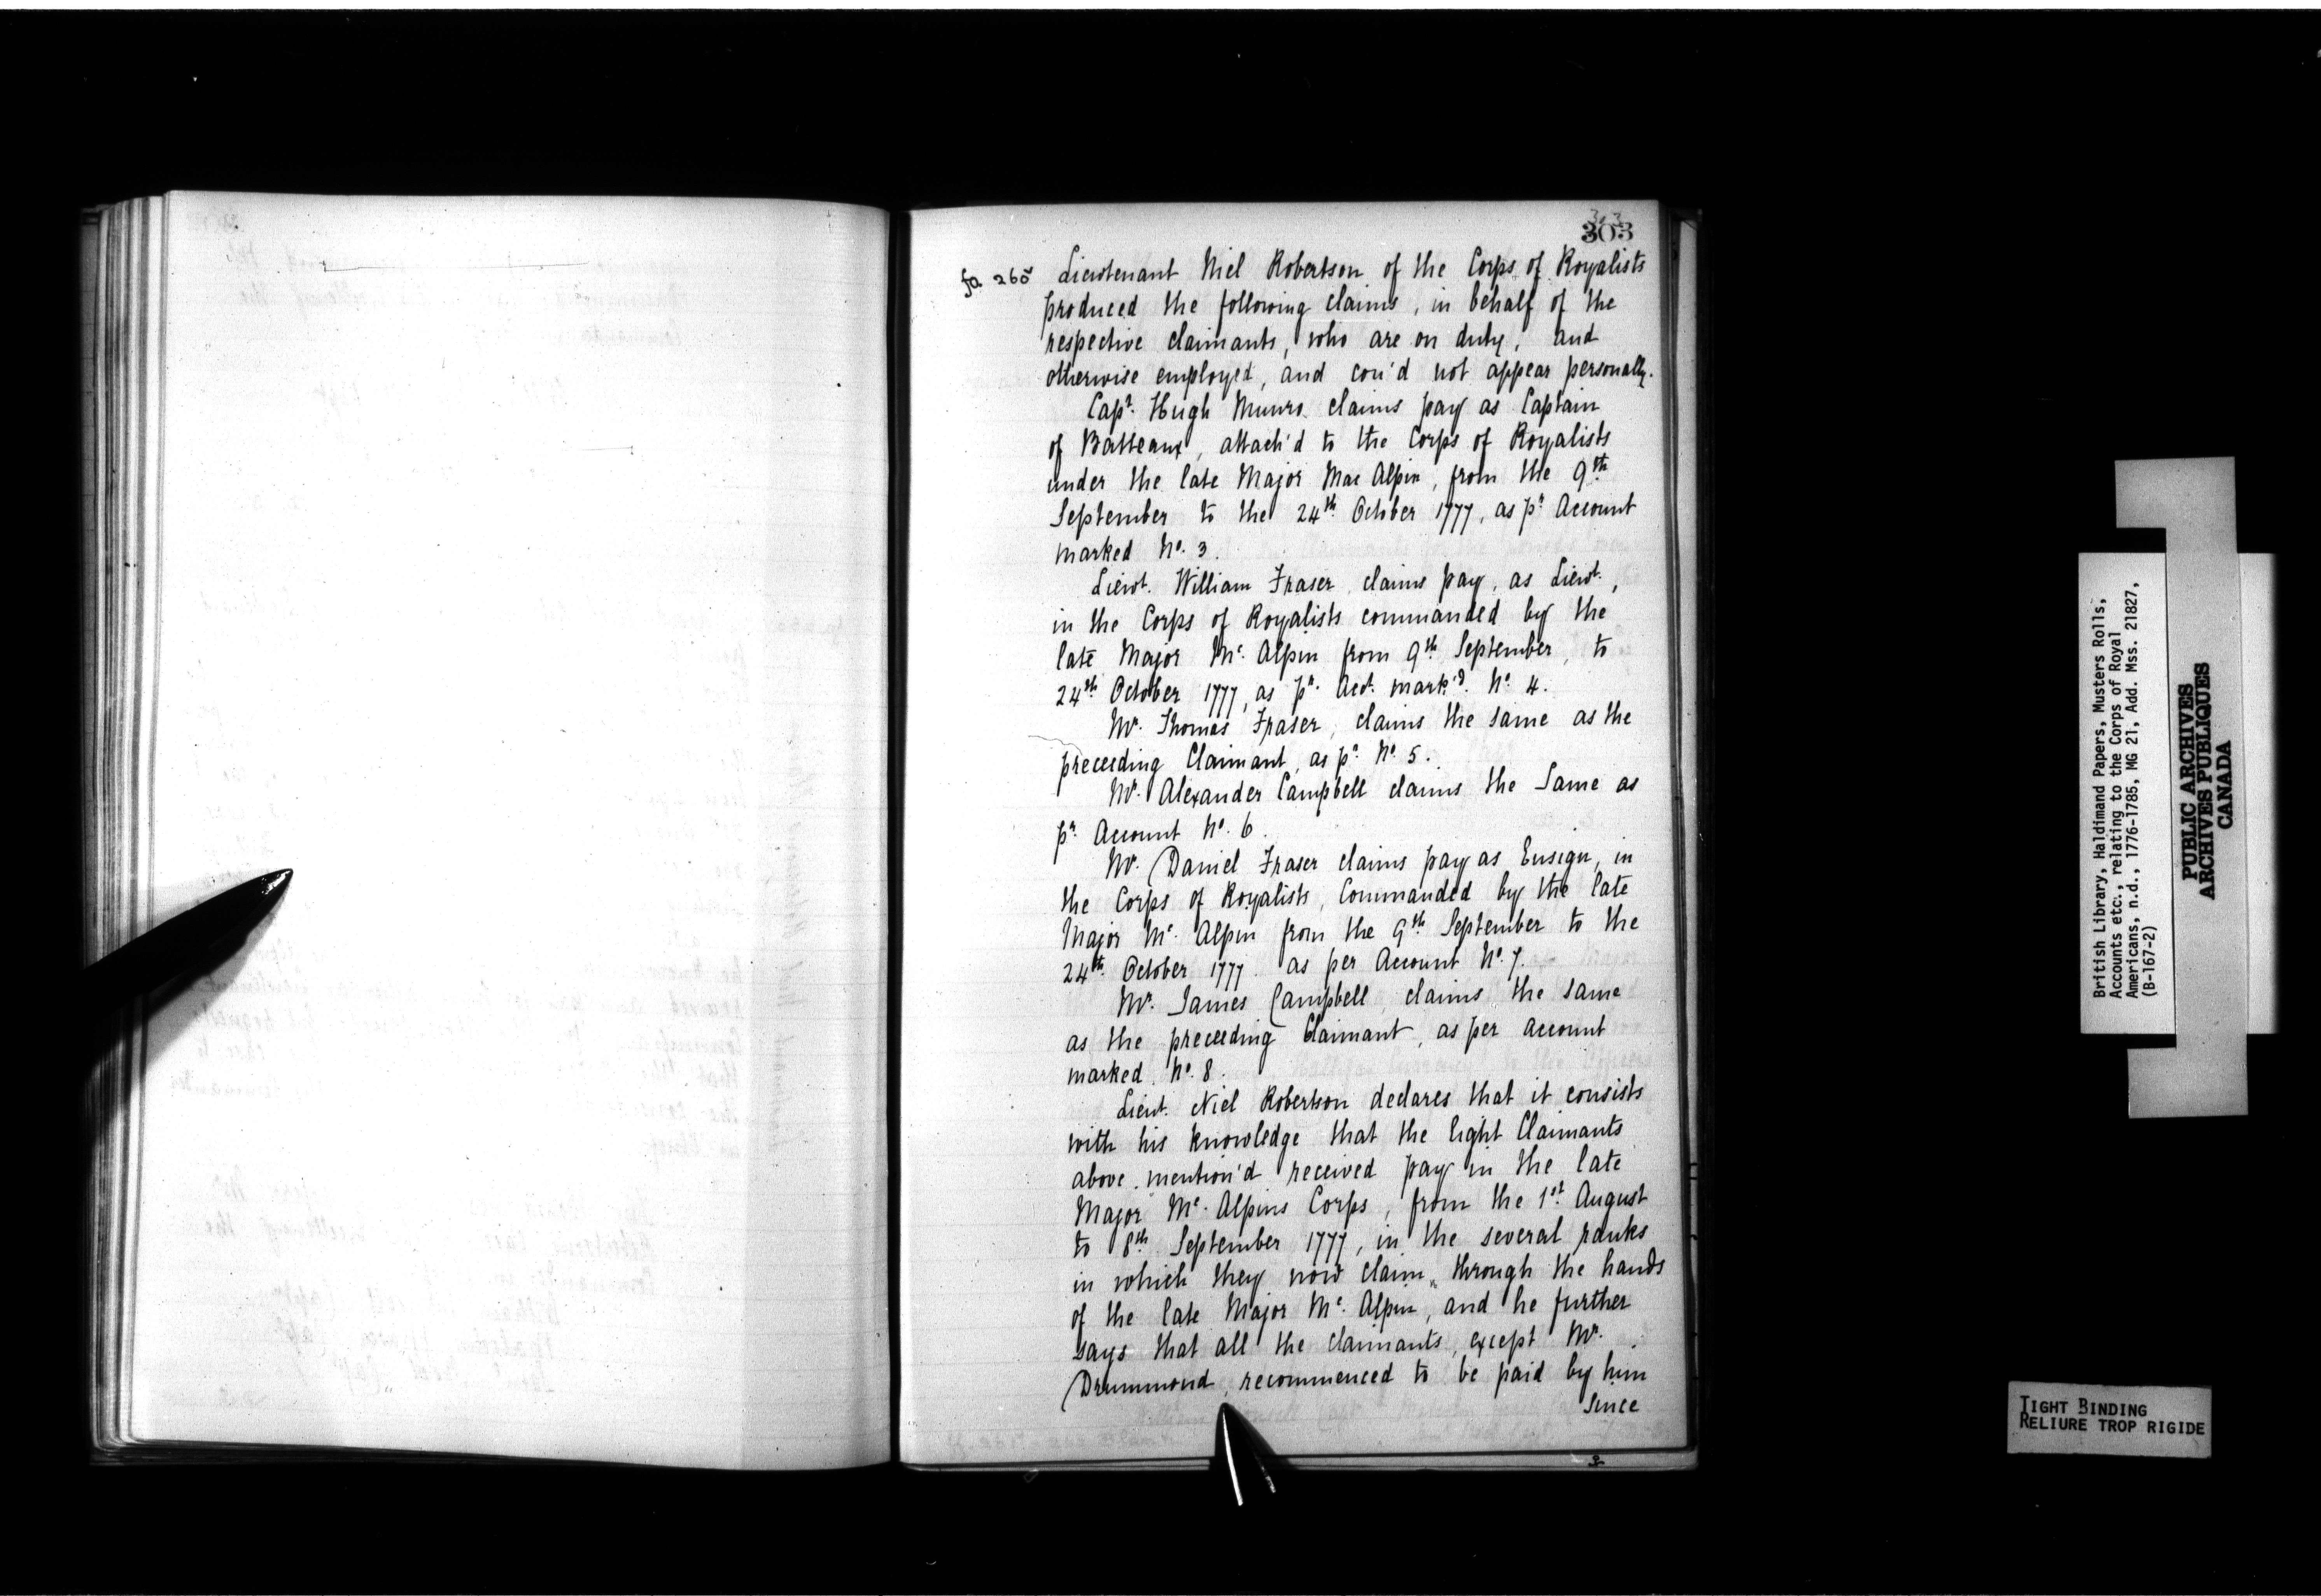 303
303
fo 265 Lieutenant Niel Robertson of the Corps of Royalists
produced the following claims, in behalf of the
respective claimants, who are on duty, and
otherwise employed, and cou'd not appear personally.
Capt. Hugh Munro claims pay as Captain
of Batteaux, attach'd to the Corps of Royalists
under the late Major Mac Alpin, from the 9th
September to the 24th October 1777, as pr Account
marked No. 3.
Lieut. William Fraser, claims pay, as Lieut.,
in the Corps of Royalists commanded by the
late Major Mc. Alpin from 9th September, to
24th October 1777, as pr. Acct. mark'd. No. 4.
Mr. Thomas Fraser, claims the same as the
preceeding Claimant, as pr. No. 5.
Mr. Alexander Campbell claims the Same as
pr. Account No. 6.
Mr. Daniel Fraser claims pay as Ensign, in
the Corps of Royalists, Commanded by the late
Major Mc. Alpin from the 9th September to the
24th. October 1777. as per Account No. 7.
Mr. James Campbell, claims the same
as the preceeding Claimant, as per account
marked No. 8.
Lieut. Niel Robertson declares that it consists
with his knowledge that the Eight Claimants
above mention'd received pay in the late
Major Mc. Alpins Corps, from the 1st. August
to 8th. September 1777, in the several ranks
in which they now claim, through the hands
of the late Major Mc. Alpin, and he further
says that all the claimants, except Mr.
Drummond, recommenced to be paid by him
Since
British Library, Haldimand Papers, Musters Rolls,
Accounts etc., relating to the Corps of Royal
Americans, n.d., 1776-1785, MG 21, Add. Mss. 21827,
(B-167-2)
PUBLIC ARCHIVES
ARCHIVES PUBLIQUES
CANADA
TIGHT BINDING
RELIURE TROP RIGIDE